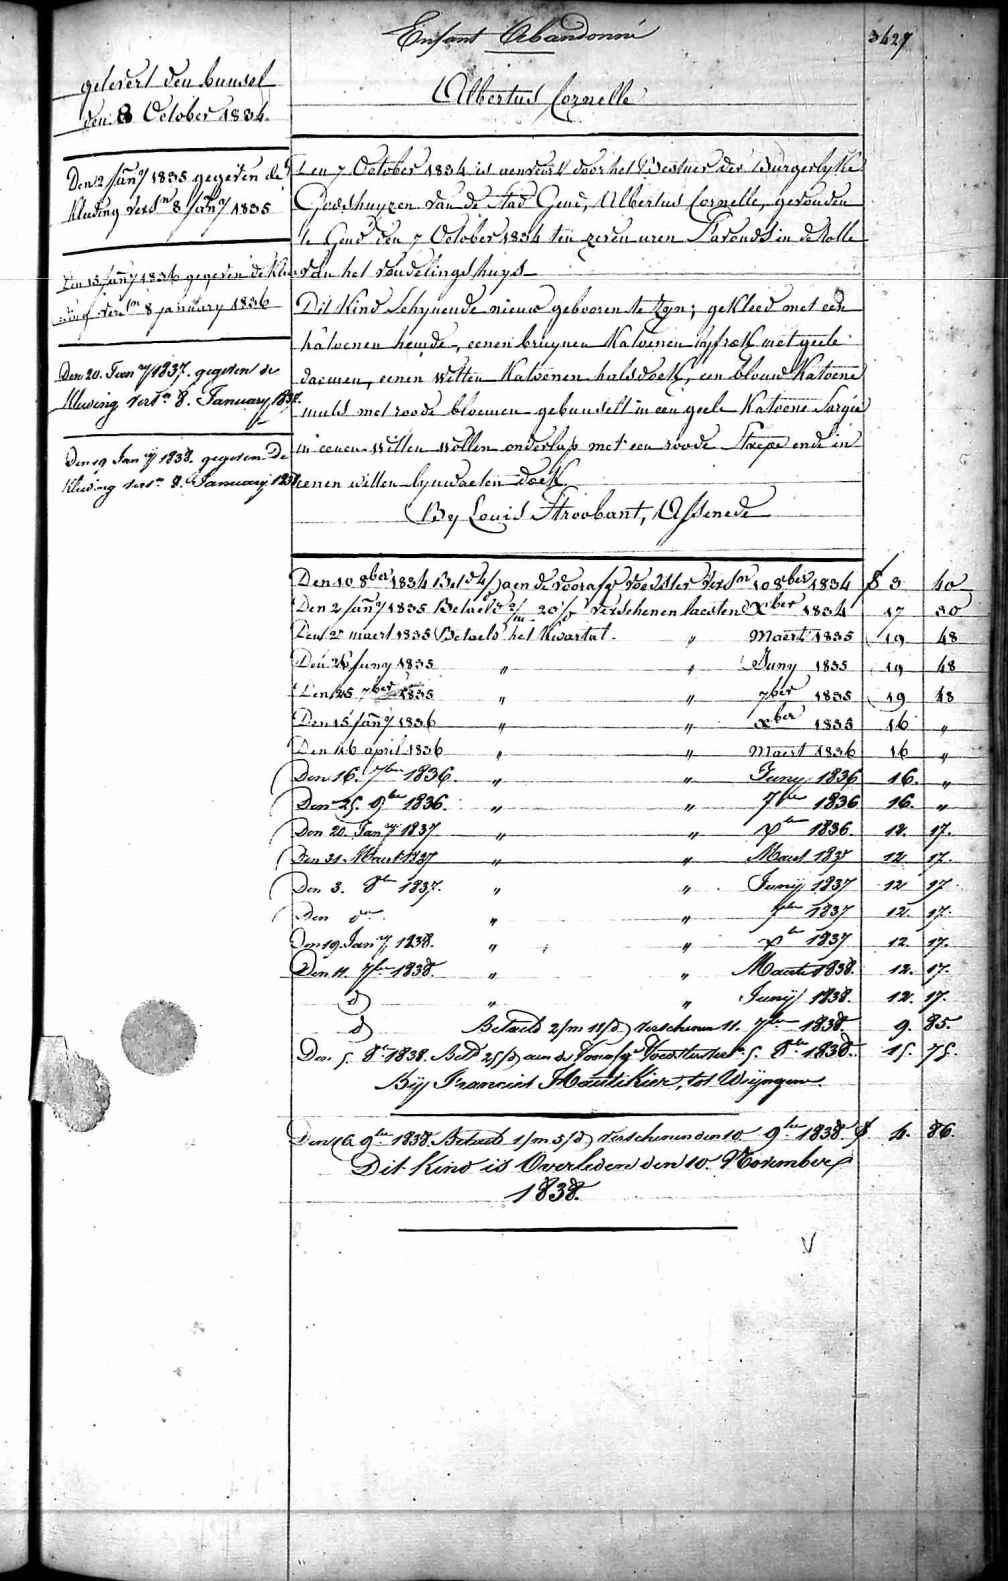 Enfant Abandonné
3427
Albertus Cornelle
gelevert den bunsel
den 8 October 1834.
Den 2 Jan̄y 1835 gegeven de
Kleding versn 8 Jan̄y 1835
Den 15 Jan̄y 1836 gegeven de Kle
ding versn 8 january 1836
Den 20. Jany 1837. gegeven de
Kleeding versn 8. January 1837.
Den 19 Jany 1838. gegeven De
Kleding versn 8. January 1838
Den 7 October 1834 is aenveird door het Bestuer der Burgerlyke
Godshuyzen van de Stad Gend, Albertus Cornelle, gevonden
te Gend den 7 October 1834 ten zeven uren S'avonds in de Rolle
van het vondelingshuys
Dit Kind Schynende nieuw gebooren te zyn; gekleed met een
katoenen hemde, eenen bruynen Katoenen lyfrok met geele
, eenen witten Katoenen halsdoek, een blouw Katoene
muts met roode bloemen gebunselt in een geele Katoene Sargie
in eenen witten wollen onderlap met een roode Strepe ende in
eenen witten lynwaeten doek.
By Louis Stroobant, Assenede
Den 10 8ber 1834 Betd 4/d aen de voorafge voedster versn 10 8ber 1834 f 3 40
Den 2 Jan̄y 1835 Betaeld 2/m 20/d verschenen laesten Xber 1834 17 30
Den 2 maert 1835 Betaeld het Kwartal. " Maert 1835 19 48
Den Juny 1835 " " Juny 1835 19 48
Den 25 7ber 1835 " " 7ber 1835 19 48
Den 15 Jan̄y 1836 " " Xber 1835 16 "
Den 16 april 1836 " " Maert 1836 16 "
Den 16. 7ber 1836 " " Juny 1836 16. "
Den 25. 9ber 1836. " " 7ber 1836 16. "
Den 20. Jany 1837 " " Xber 1836. 12. 17.
Den 31. Maert 1837 " " Maert 1837 12 17.
Den 3. 8ber 1837. " " Junij 1837 12 17
Den do " " 7ber 1837 12. 17.
Den 19. Jany 1838. " " Xber 1837 12 17.
Den 11. 7ber 1838. " " Maert 1838. 12. 17.
d " " Junij 1838. 12. 17.
d Betaeld 2/m 11/d verschenen 11. 7ber 1838. 9. 85.
Den 5. 8ber 1838. Betd 25/d aen de voorafge Voedster versn 5. 8ber 1838. 15. 75.
Bij Francies , tot
Den 16 9ber 1838. Betaeld 1/m 5/d verschenen den 10 9ber 1838. f 4. 86.
Dit Kind is Overleden den 10. November
1838.
V